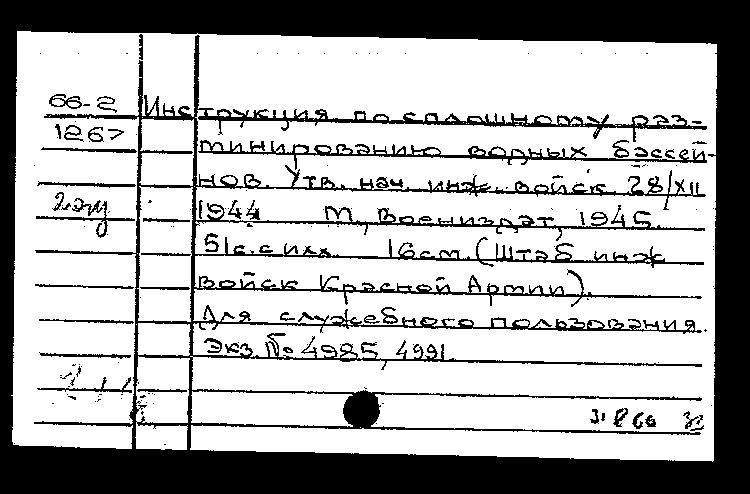 66-2 Инструкция по сплошному раз-
1267
минированию водных бассей-
нов. Утв. нач. инж. войск 28/XII
2 экз
1944 М., Воениздат, 1945.
51с. с илл. 16см. (Штаб инж
войск Красной Армии).
Для служебного пользования.
Экз. № 4985, 4991.